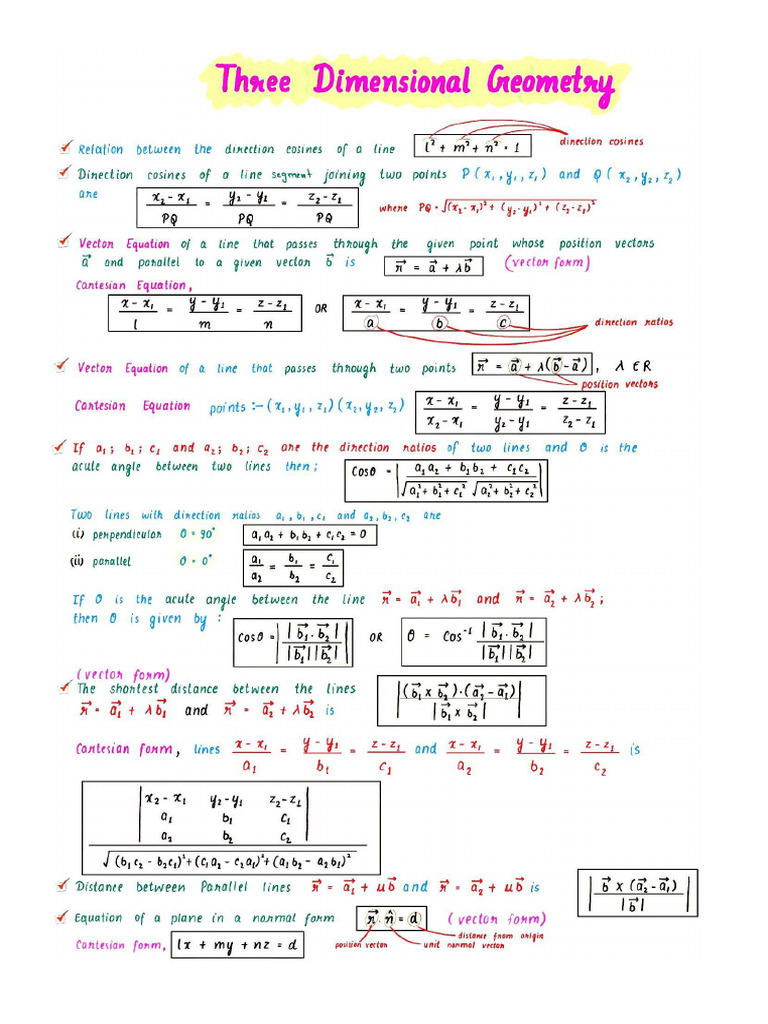 Three Dimensional Geometry
Relation between the direction cosines of a line l² + m² + n² = 1 direction cosines
Direction cosines of a line segment joining two points P(x₁, y₁, z₁) and Q(x₂, y₂, z₂)
are (x₂ - x₁)/PQ = (y₂ - y₁)/PQ = (z₂ - z₁)/PQ where PQ = √((x₂ - x₁)² + (y₂ - y₁)² + (z₂ - z₁)²)
Vector Equation of a line that passes through the given point whose position vectors
a⃗ and parallel to a given vector b⃗ is r⃗ = a⃗ + λb⃗ (vector form)
Cartesian Equation,
(x - x₁)/l = (y - y₁)/m = (z - z₁)/n OR (x - x₁)/a = (y - y₁)/b = (z - z₁)/c direction ratios
Vector Equation of a line that passes through two points r⃗ = a⃗ + λ(b⃗ - a⃗), λ ∈ R
position vectors
Cartesian Equation points :- (x₁, y₁, z₁) (x₂, y₂, z₂) (x - x₁)/(x₂ - x₁) = (y - y₁)/(y₂ - y₁) = (z - z₁)/(z₂ - z₁)
If a₁; b₁; c₁ and a₂; b₂; c₂ are the direction ratios of two lines and θ is the
acute angle between two lines then; cosθ = |(a₁a₂ + b₁b₂ + c₁c₂)/(√(a₁² + b₁² + c₁²) √(a₂² + b₂² + c₂²))|
Two lines with direction ratios a₁, b₁, c₁ and a₂, b₂, c₂ are
(i) perpendicular θ = 90° a₁a₂ + b₁b₂ + c₁c₂ = 0
(ii) parallel θ = 0° a₁/a₂ = b₁/b₂ = c₁/c₂
If θ is the acute angle between the line r⃗ = a⃗₁ + λb⃗₁ and r⃗ = a⃗₂ + λb⃗₂;
then θ is given by : cosθ = | |b⃗₁ · b⃗₂| / |b⃗₁||b⃗₂| | OR θ = cos⁻¹ | |b⃗₁ · b⃗₂| / |b⃗₁||b⃗₂| |
(vector form)
The shortest distance between the lines
r⃗ = a⃗₁ + λb⃗₁ and r⃗ = a⃗₂ + λb⃗₂ is |(b⃗₁ x b⃗₂)·(a⃗₂ - a⃗₁) / |b⃗₁ x b⃗₂||
Cartesian form, lines (x - x₁)/a₁ = (y - y₁)/b₁ = (z - z₁)/c₁ and (x - x₁)/a₂ = (y - y₁)/b₂ = (z - z₁)/c₂ is
| x₂ - x₁ y₂ - y₁ z₂ - z₁ |
| a₁ b₁ c₁ |
| a₂ b₂ c₂ |
√((b₁c₂ - b₂c₁)² + (c₁a₂ - c₂a₁)² + (a₁b₂ - a₂b₁)²)
Distance between Parallel lines r⃗ = a⃗₁ + μb⃗ and r⃗ = a⃗₂ + μb⃗ is |b⃗ x (a⃗₂ - a⃗₁) / |b⃗||
Equation of a plane in a normal form r⃗ · n̂ = d (vector form)
position vector unit normal vector distance from origin
Cartesian form, lx + my + nz = d